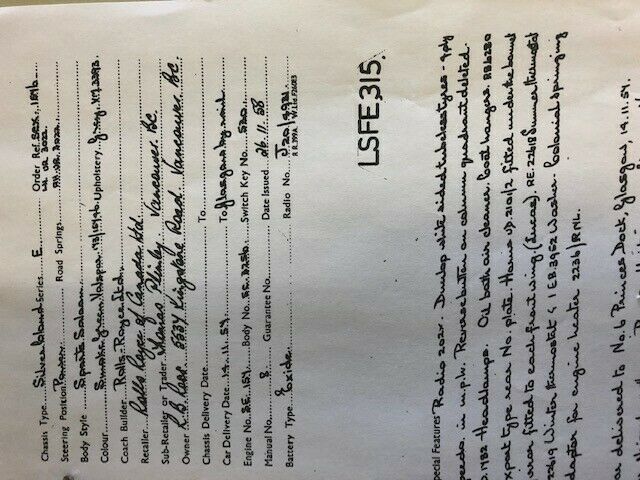 Chassis Type Silver Cloud Series E Order Ref. SCX. 1186
Steering Position Road Springs
Body Style Sports Saloon
Colour Smoke Green Upholstery Grey VM.3393
Coach Builder Rolls-Royce Ltd.
Retailer Rolls Royce of Canada Ltd.
Sub-Retailer or Trader Thomas Plimley Vancouver BC.
Owner R.B. Ross 5537 Kingston Road. Vancouver. BC.
Chassis Delivery Date To
Car Delivery Date 14.11.59 To Glasgow by rail
Engine No. SE.157 Body No. Switch Key No.
Manual No. Guarantee No. Date Issued 26.11.58
Battery Type Exide Radio No.
LSFE,315.
pecial Features Radio 202X. Dunlop white sided tubeless tyres - 4 ply
peedo. in m.p.h. Reverse button on column quadrant deleted.
1982 Headlamps. Oil bath air cleaner. Coat hangers.
xport type rear No. plate. Horns UD.210/2 fitted under the bonnet
fitted to each front wing (Lucas). RE.22618 Summer thermostat
22619 Winter thermostat & 1 EB.3952 Washer. Colonial springing
daptor for engine heater 2236/RNL.
ar delivered to No.6 Princes Dock, Glasgow, 14.11.59.